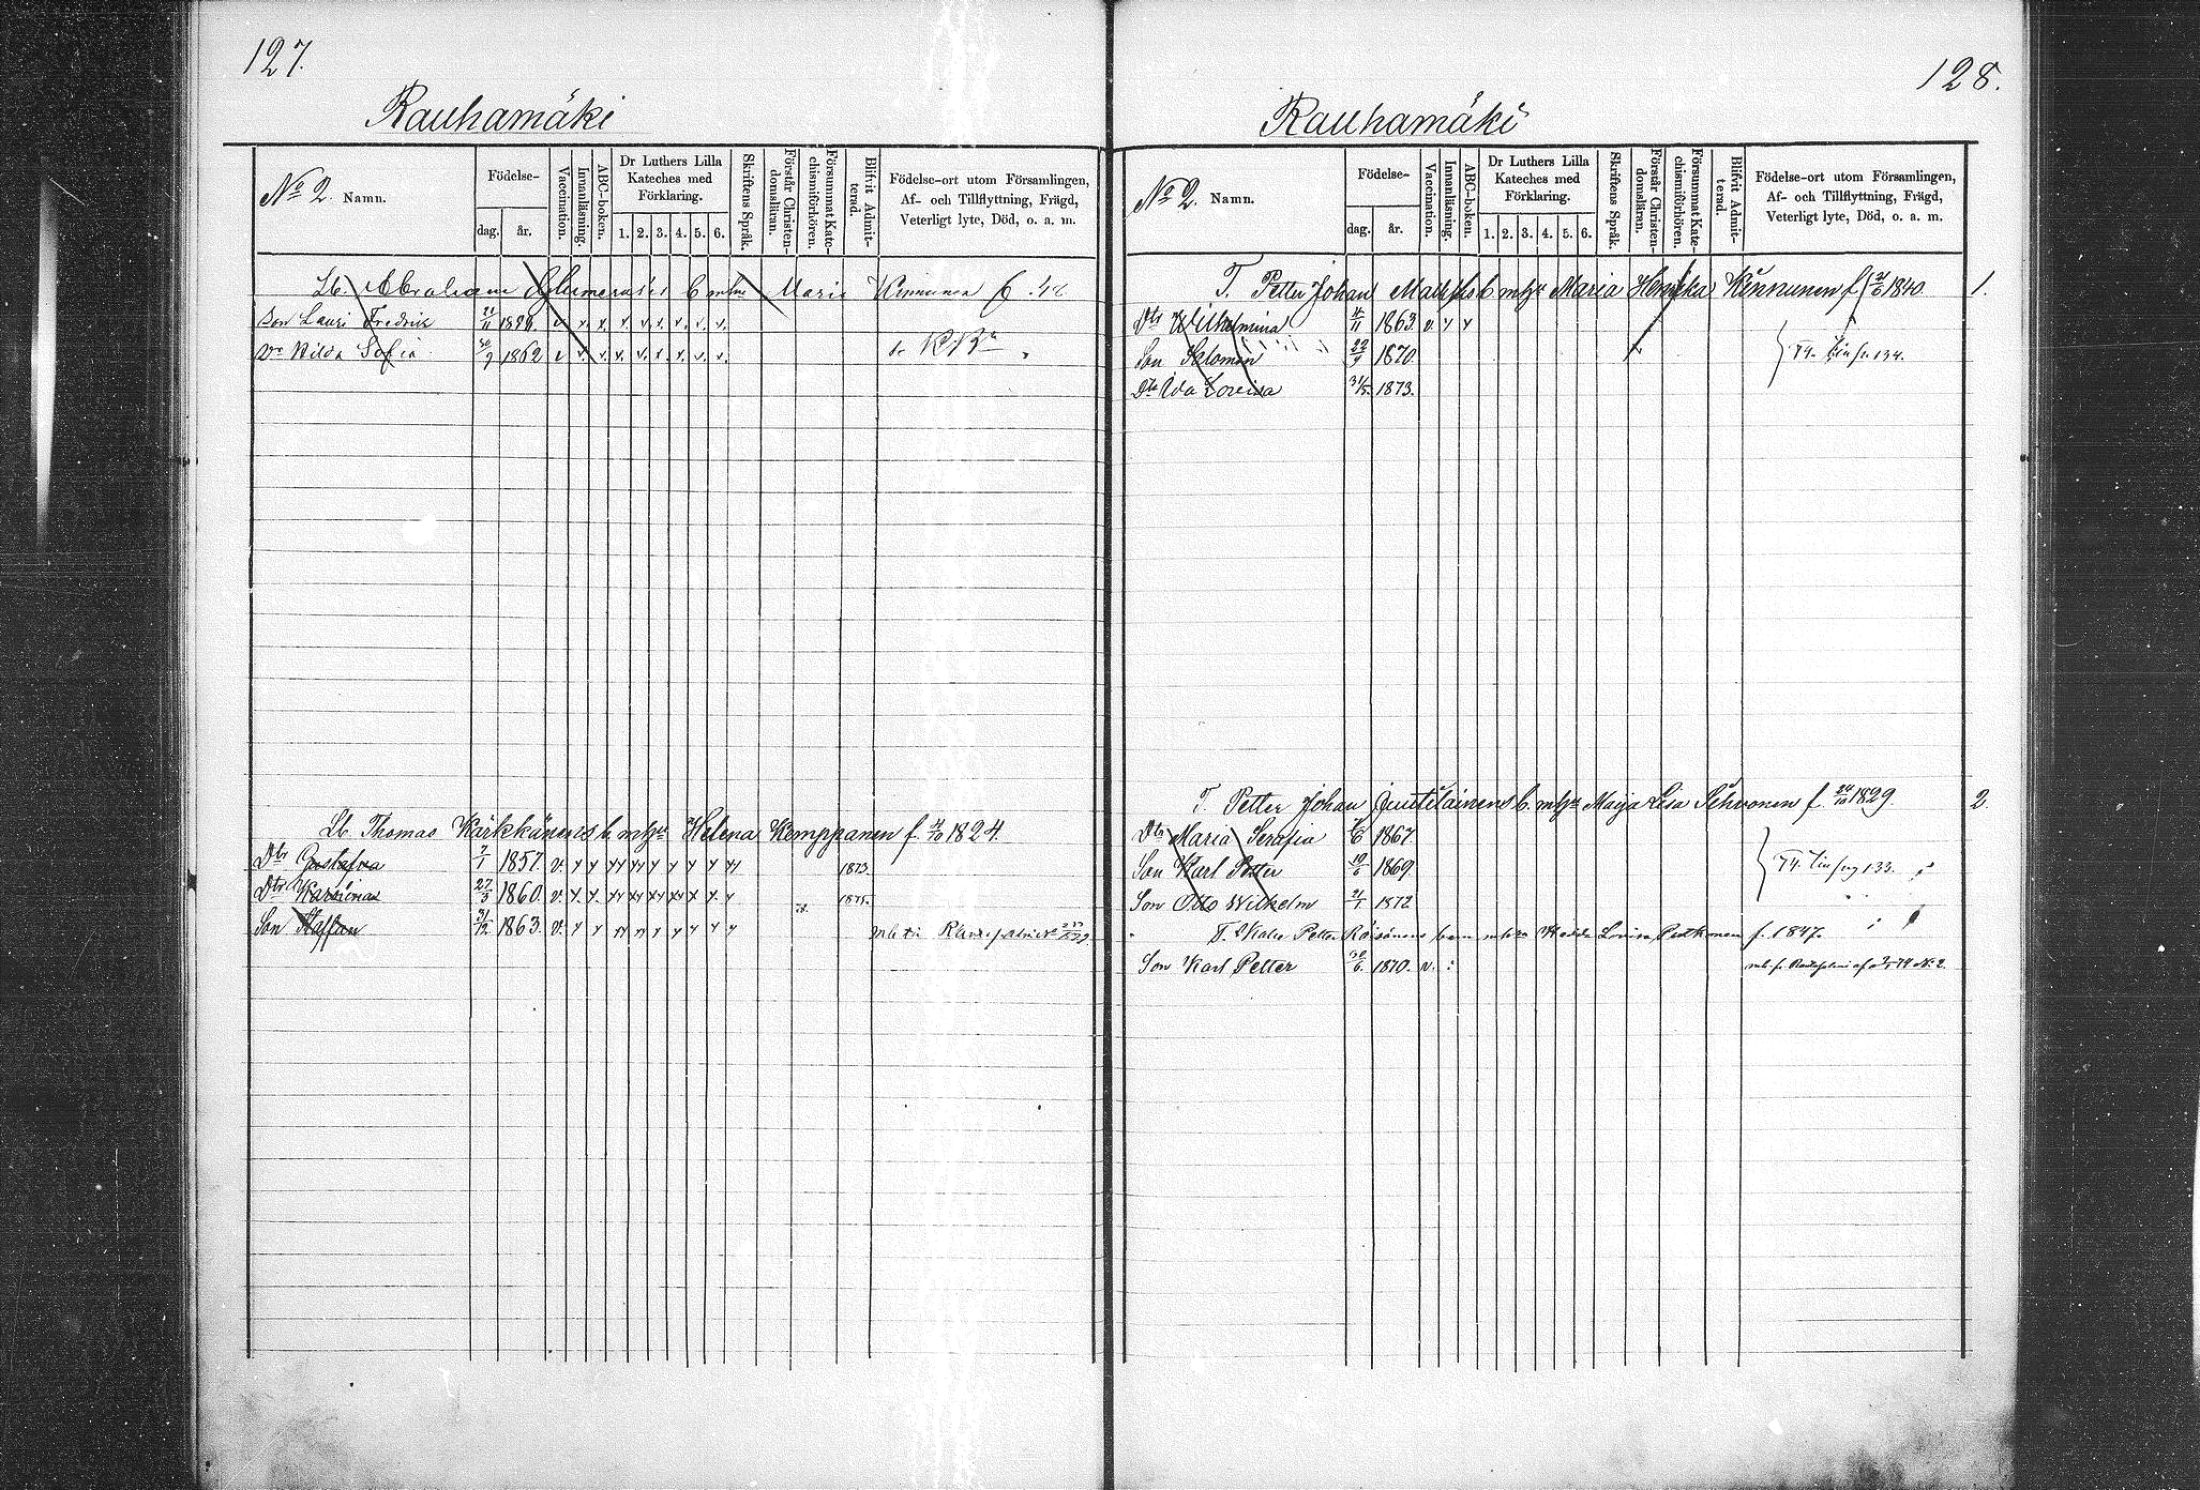 127.
Rauhamäki
No 2. Namn.
Födelse-
dag. år.
Vaccination.
Innanläsning.
ABC-boken.
Dr Luthers Lilla Kateches med Förklaring.
1. 2. 3. 4. 5. 6.
Skriftens Språk.
Förstår Christen-domsläran.
Försummat Kate-chismiförhören.
Blifvit Admit-terad.
Födelse-ort utom Församlingen,
Af- och Tillflyttning, Frägd,
Veterligt lyte, Död, o. a. m.
Lb. Abraham Maria Kinnunen
Son Lauri Fredrik
Hilda Sofia 30/9 1862
Lb. Thomas Kärkkänens b. m h Helena Kemppanen f. 1824.
Dtr Gustafva 7/1 1857. v. 1873.
Dtr Karolina 27/3 1860. v. 1875.
Son Staffan 31/12 1863. v.
128.
Rauhamäki
No 2. Namn.
Födelse-
dag. år.
Vaccination.
Innanläsning.
ABC-boken.
Dr Luthers Lilla Kateches med Förklaring.
1. 2. 3. 4. 5. 6.
Skriftens Språk.
Förstår Christen-domsläran.
Försummat Kate-chismiförhören.
Blifvit Admit-terad.
Födelse-ort utom Församlingen,
Af- och Tillflyttning, Frägd,
Veterligt lyte, Död, o. a. m.
T. Petter Johan b m Maria Henrika Kinnunen f. 1840. 1.
Dtr Wilhelmina 1863. v.
Son Salomon 1870. 134.
Dtr Ida Lovisa 31/5. 1873.
T. Petter Johan Juutilainens b. m Maija Lisa Sihvonen f. 1829. 2.
Dtr Maria Serafia 1867.
Son Karl Petter 19/6 1869. 74. 133.
Son Otto Wilhelm 21/1 1872
T. Petter Räisänens barn Hedda Lovisa f. 1847.
Son Karl Petter 30/6. 1870. v.